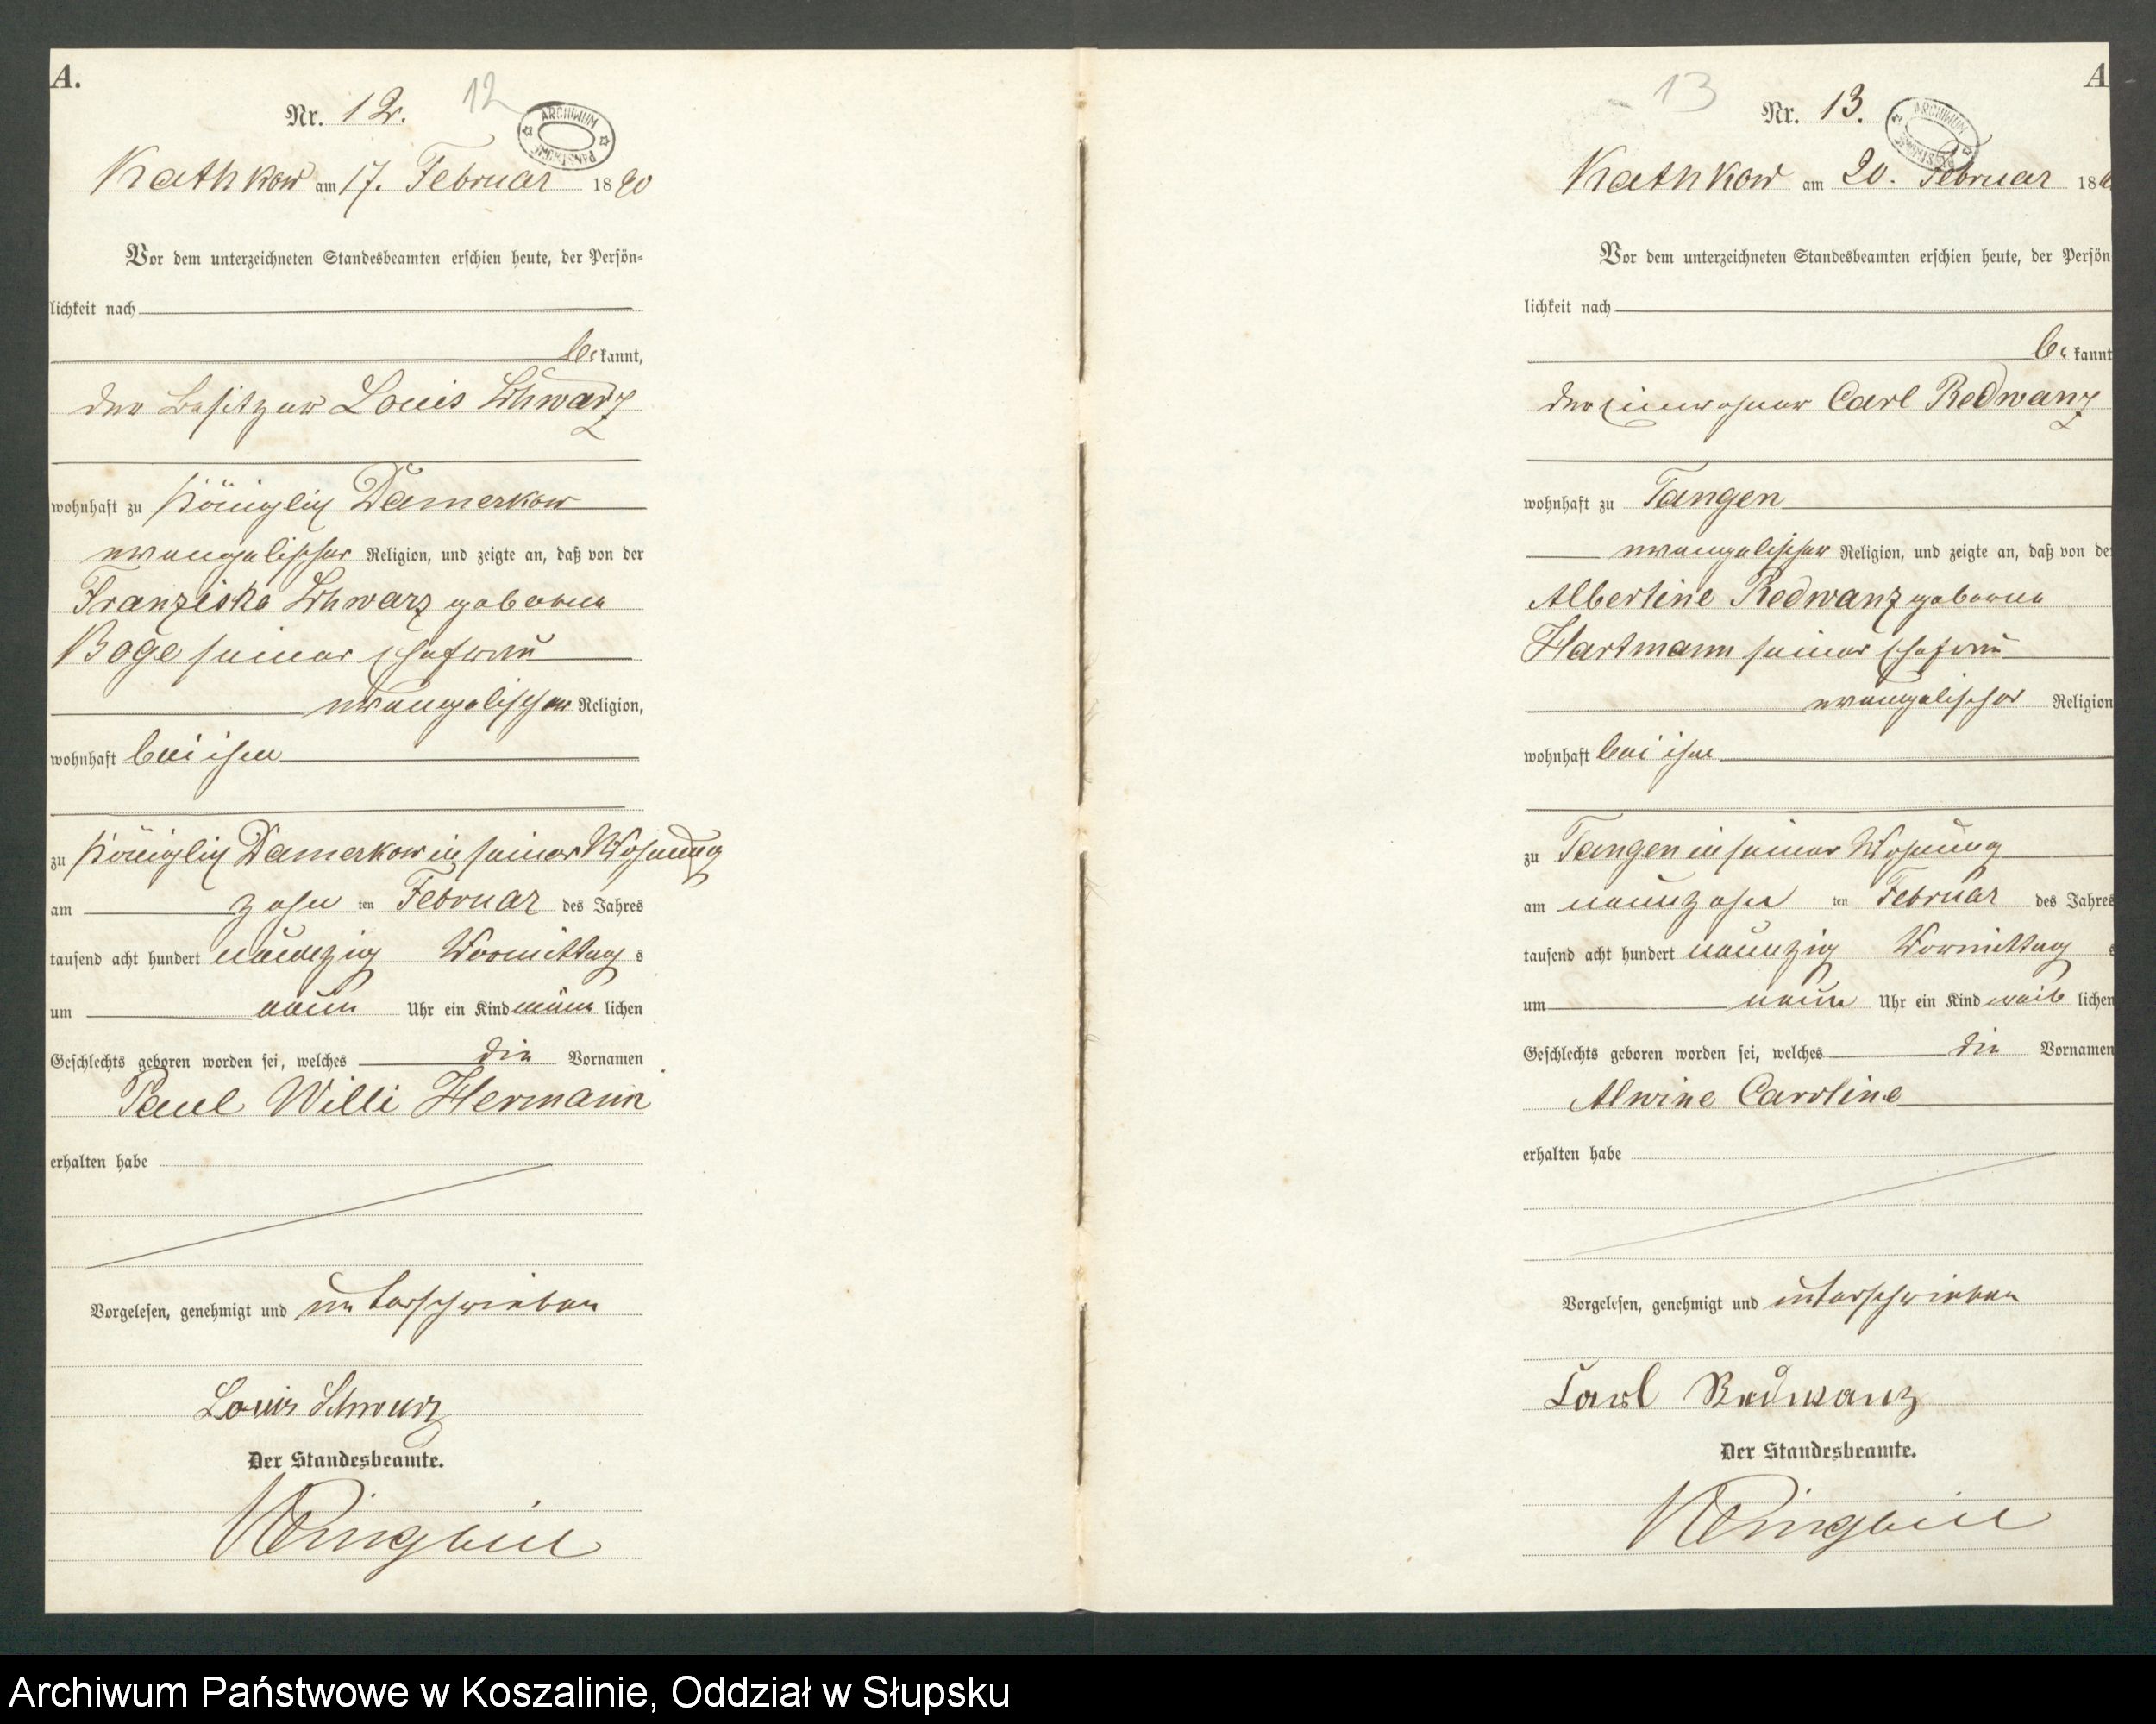 A.
Nr. 12.
12
ARCHIWUM PAŃSTWOWE
Kathkow am 17. Februar 1890
Vor dem unterzeichneten Standesbeamten erschien heute, der Persön-
lichkeit nach
bekannt,
der Besitzer Louis Schwarz
wohnhaft zu Königlich Damerkow
evangelischer Religion, und zeigte an, daß von der
Franziska Schwarz geborene
Boge seiner Ehefrau
evangelischer Religion,
wohnhaft bei ihm
zu Königlich Damerkow in seiner Wohnung
am zehn ten Februar des Jahres
tausend acht hundert neunzig Vormittags
um neun Uhr ein Kind männlichen
Geschlechts geboren worden sei, welches die Vornamen
Paul Willi Hermann
erhalten habe
Vorgelesen, genehmigt und unterschrieben
Louis Schwarz
Der Standesbeamte.
A
13
Nr. 13.
ARCHIWUM PAŃSTWOWE
Kathkow am 20. Februar 18
Vor dem unterzeichneten Standesbeamten erschien heute, der Persön
lichkeit nach
bekannt
der Einwohner Carl Redwanz
wohnhaft zu Tangen
evangelischer Religion, und zeigte an, daß von de
Albertine Redwanz geborene
Hartmann seiner Ehefrau
evangelischer Religion
wohnhaft bei ihm
zu Tangen in seiner Wohnung
am neunzehn ten Februar des Jahres
tausend acht hundert neunzig Vormittag s
um neun Uhr ein Kind weiblichen
Geschlechts geboren worden sei, welches die Vornamen
Alwine Caroline
erhalten habe
Vorgelesen, genehmigt und unterschrieben
Carl Redwanz
Der Standesbeamte.
Archiwum Państwowe w Koszalinie, Oddział w Słupsku